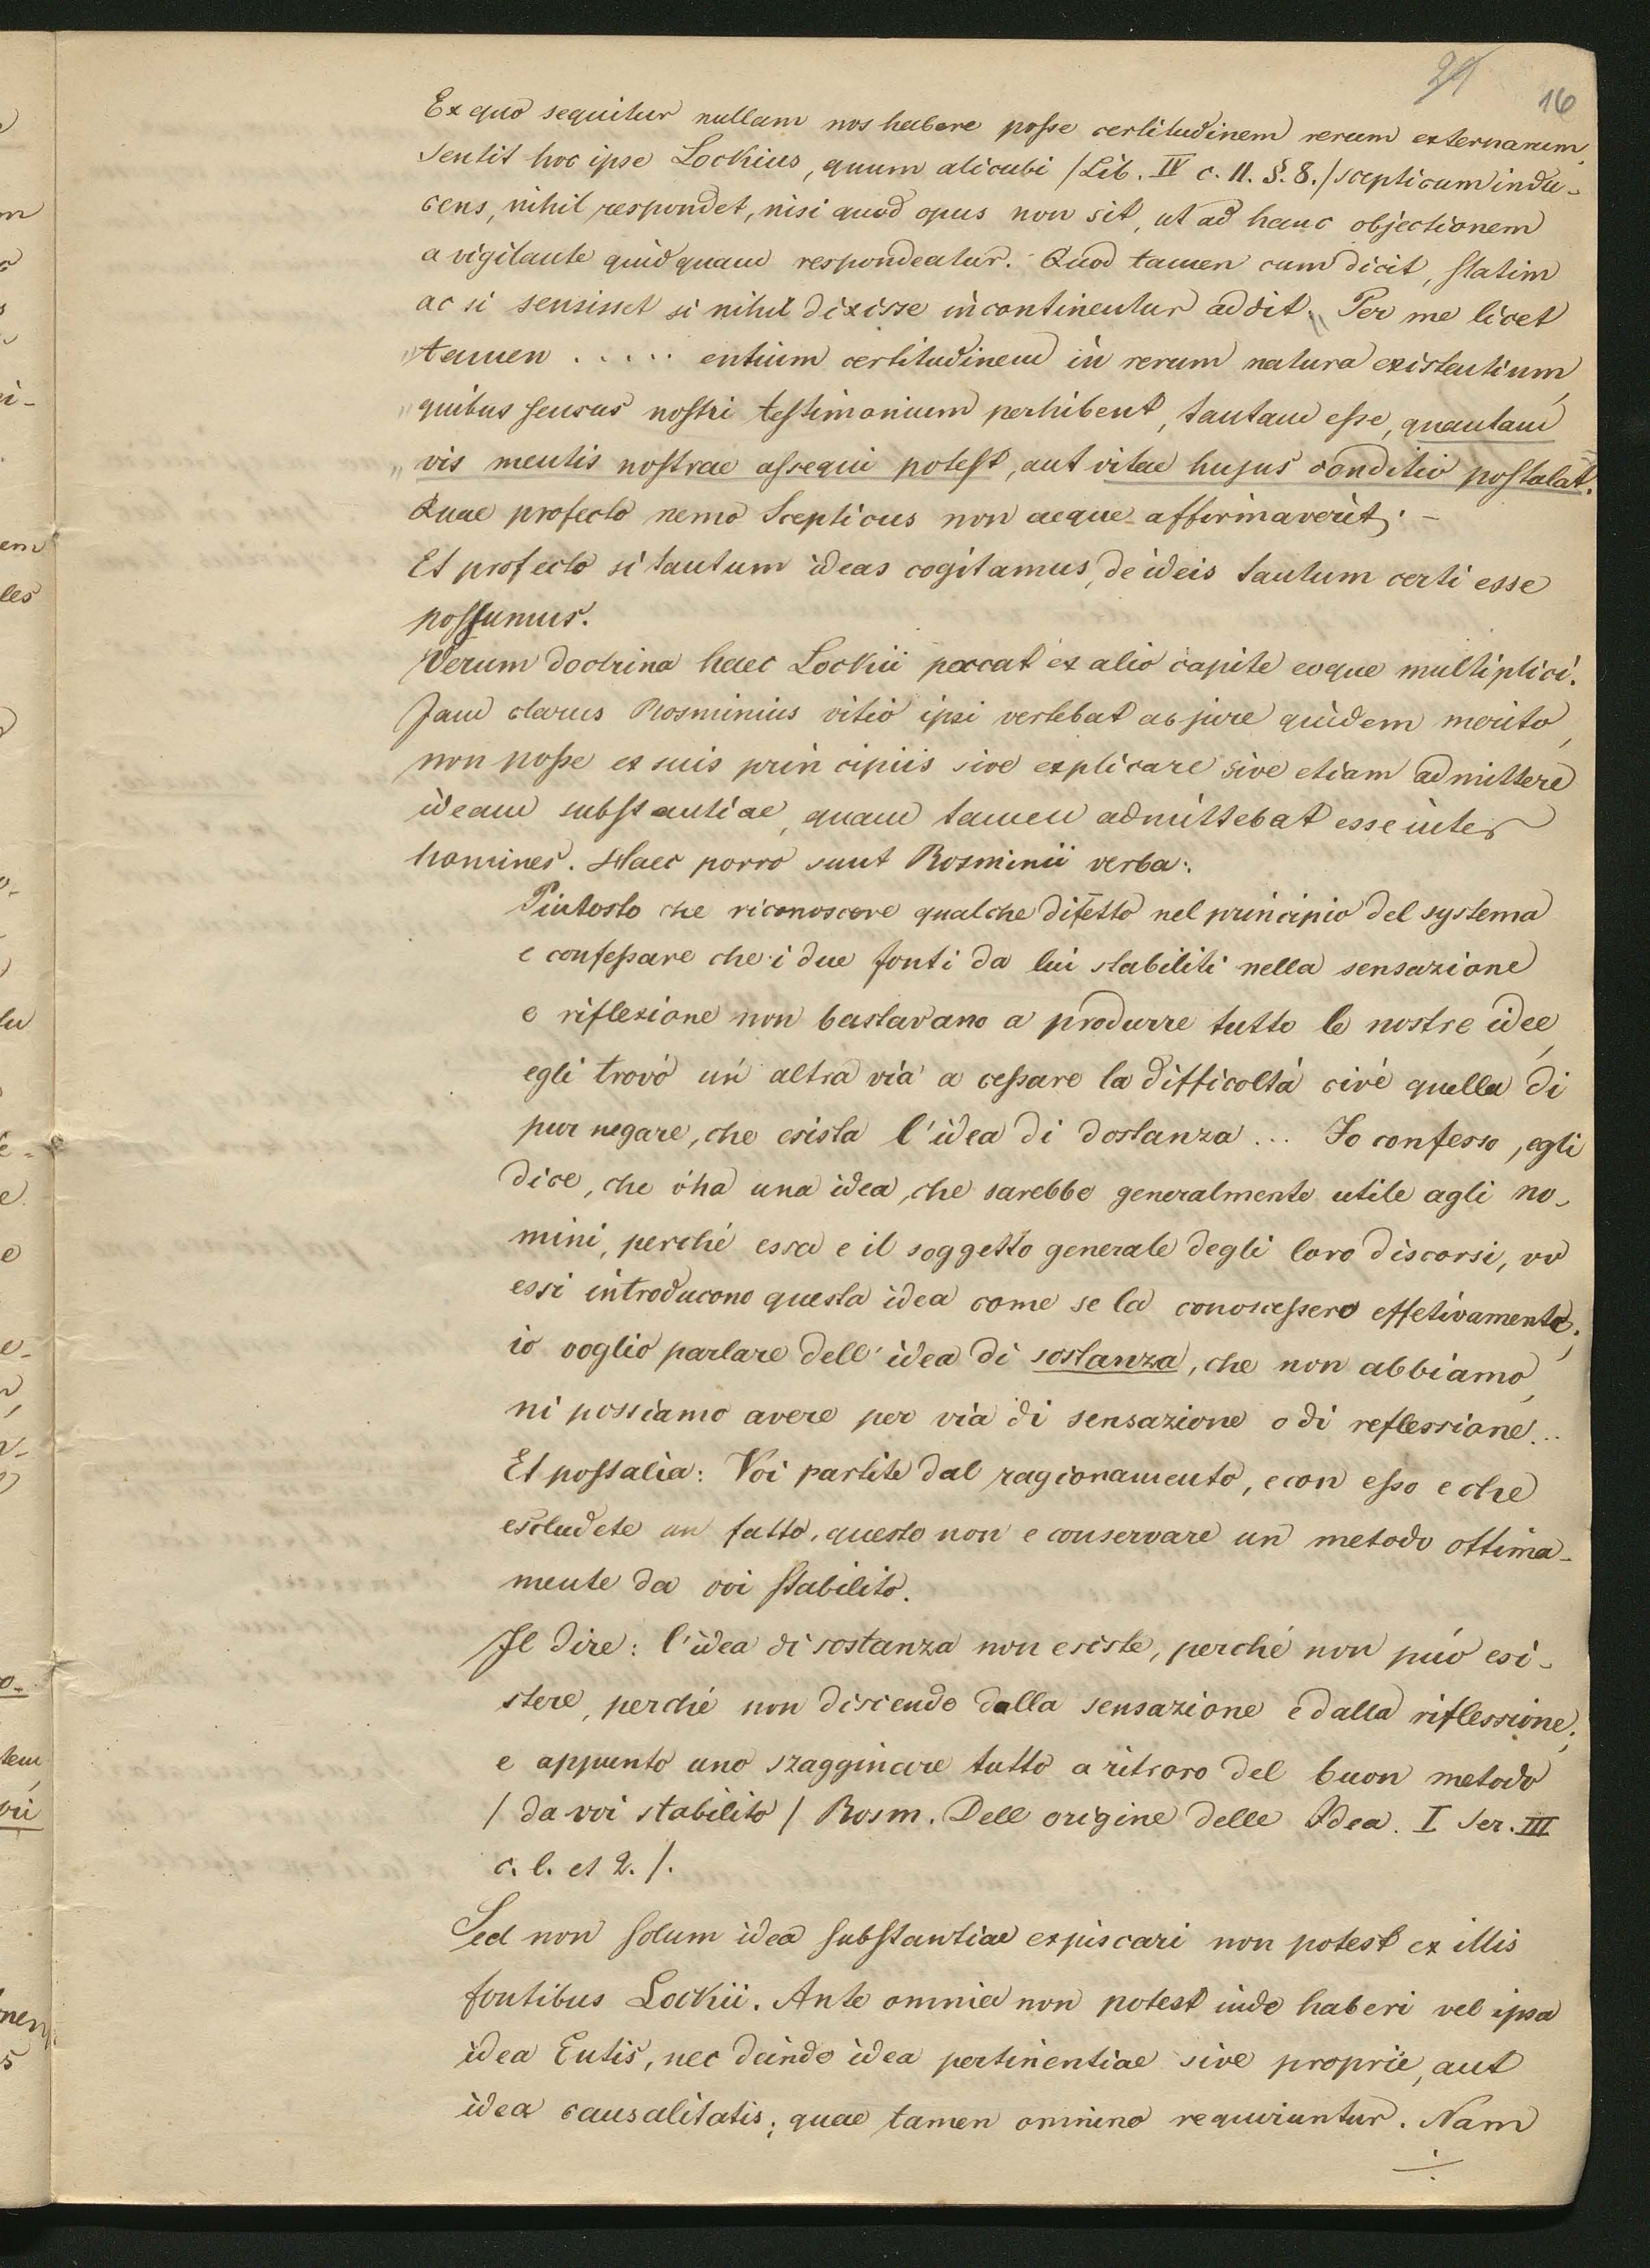 21 16
Ex quo sequitur nullam nos habere posse certitudinem rerum externarum.
Sentit hoc ipse Lockius, quum alicubi /Lib. IV c. 11. §. 8./ scepticum indu-
cens, nihil respondet, nisi quod opus non sit, ut ad hanc objectionem
a vigilante quidquam respondeatur. Quod tamen cum dicit, statim
ac si sensisset si nihil dixisse incontinentur addit. „Per me licet
„tamen ..... entium certitudinem in rerum natura existentium,
„quibus sensus nostri testimonium perhibent, tantam esse, quantam
„vis mentis nostrae assequi potest, aut vitae hujus conditio postulat.
Quae profecto nemo Scepticus non aeque affirmaverit; -
Et profecto si tantum ideas cogitamus, de ideis tantum certi esse
possumus.
Verum doctrina haec Lockii peccat ex alio capite eoque multiplici.
Jam clarus Rosminius vitio ipsi vertebat ac jure quidem merito,
non posse ex suis principiis sive explicare sive etiam admittere
ideam substantiae, quam tamen admittebat esse inter
homines. Haec porro sunt Rosminii verba:
Piutosto che riconoscere qualche difetto nel principio del systema
e confessare che i due fonti da lui stabiliti nella sensazione
e riflexione non bastavano a produrre tutto le nostre idee,
egli trovó un altra via a cessare la difficoltá civé quella di
pur negare, che esista l'idea di dostanza ... Io confesso, egli
dice, che óha una idea, che sarebbe generalmente utile agli no-
mini, perché essa e il soggetto generale degli loro discorsi, vv
essi introducono questa idea come se la conoscessero effetivamente;
io voglio parlare dell' idea di sostanza, che non abbiamo,
ni possiamo avere per via di sensazione o di reflessione...
Et postalia: Voi partite dal ragionamento, e con esso e che
escludete un fatto, questo non e conservare un metodo ottima-
mente da voi stabilito.
Il dire: l'idea di sostanza non esiste, perché non púo esi-
stere, perché non discende dalla sensazione e dalla riflessione;
e appunto uno szagginare tutto a ritroro del buon metodo
/ da voi stabilito / Rosm. Dell origine delle Idea. I Ser. III
c. l. et 2. /.
Sed non solum idea substantiae expiscari non potest ex illis
fontibus Lockii. Ante omnia non potest inde haberi vel ipsa
idea Entis, nec deinde idea pertinentiae sive proprie, aut
idea causalitatis; quae tamen omnino requiruntur. Nam